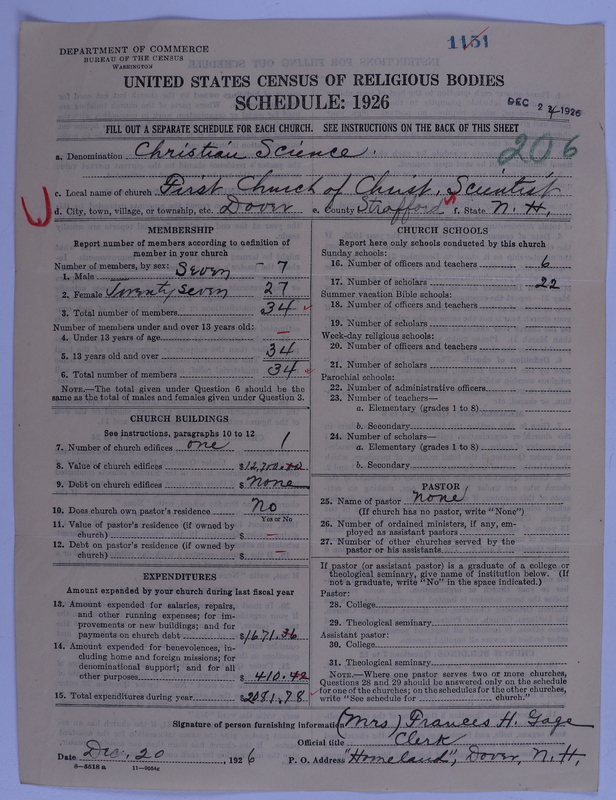 1151
DEPARTMENT OF COMMERCE
BUREAU OF THE CENSUS
WASHINGTON
UNITED STATES CENSUS OF RELIGIOUS BODIES
SCHEDULE: 1926
DEC 24 1926
FILL OUT A SEPARATE SCHEDULE FOR EACH CHURCH. SEE INSTRUCTIONS ON THE BACK OF THIS SHEET
206
a. Denomination Christian Science.
c. Local name of church First Church of Christ, Scientist
d. City, town, village, or township, etc. Dover e. County Strafford f. State N. H.
MEMBERSHIP
Report number of members according to definition of
member in your church
Number of members, by sex:
1. Male Seven - 7
2. Female Twenty Seven 27
3. Total number of members 34
Number of members under and over 13 years old:
4. Under 13 years of age —
5. 13 years old and over 34
6. Total number of members 34
NOTE.—The total given under Question 6 should be
same as the total of males and females given under Question 3.
CHURCH BUILDINGS
See instructions, paragraphs 10 to 12
7. Number of church edifices one 1
8. Value of church edifices $12,700.
9. Debt on church edifices $ None
10. Does church own pastor's residence No
Yes or No
11. Value of pastor's residence (if owned by
church) $ —
12. Debt on pastor's residence (if owned by
church) $ —
EXPENDITURES
Amount expended by your church during last fiscal year
13. Amount expended for salaries, repairs,
and other running expenses; for im-
provements or new buildings; and for
payments on church debt $1671.36
14. Amount expended for benevolences, in-
cluding home and foreign missions; for
denominational support; and for all
other purposes $410.42
15. Total expenditures during year $2081.78
CHURCH SCHOOLS
Report here only schools conducted by this church
Sunday schools:
16. Number of officers and teachers 6
17. Number of scholars 22
Summer vacation Bible schools:
18. Number of officers and teachers
19. Number of scholars
Week-day religious schools:
20. Number of officers and teachers
21. Number of scholars
Parochial schools:
22. Number of administrative officers
23. Number of teachers—
a. Elementary (grades 1 to 8)
b. Secondary
24. Number of scholars—
a. Elementary (grades 1 to 8)
b. Secondary
PASTOR
25. Name of pastor None
(If church has no pastor, write "None")
26. Number of ordained ministers, if any, em-
ployed as assistant pastors
27. Number of other churches served by the
pastor or his assistants
If pastor (or assistant pastor) is a graduate of a college or
theological seminary, give name of institution below. (If
not a graduate, write "No" in the space indicated.)
Pastor:
28. College
29. Theological seminary
Assistant pastor:
30. College
31. Theological seminary
NOTE.—Where one pastor serves two or more churches,
Questions 28 and 29 should be answered only on the schedule
for one of the churches; on the schedules for the other churches,
write "See schedule for church."
Signature of person furnishing information (Mrs) Frances H. Gage
Official title Clerk
Date Dec. 20, 1926 P. O. Address "Homeland", Dover, N. H.
8-5518 a 11-9054